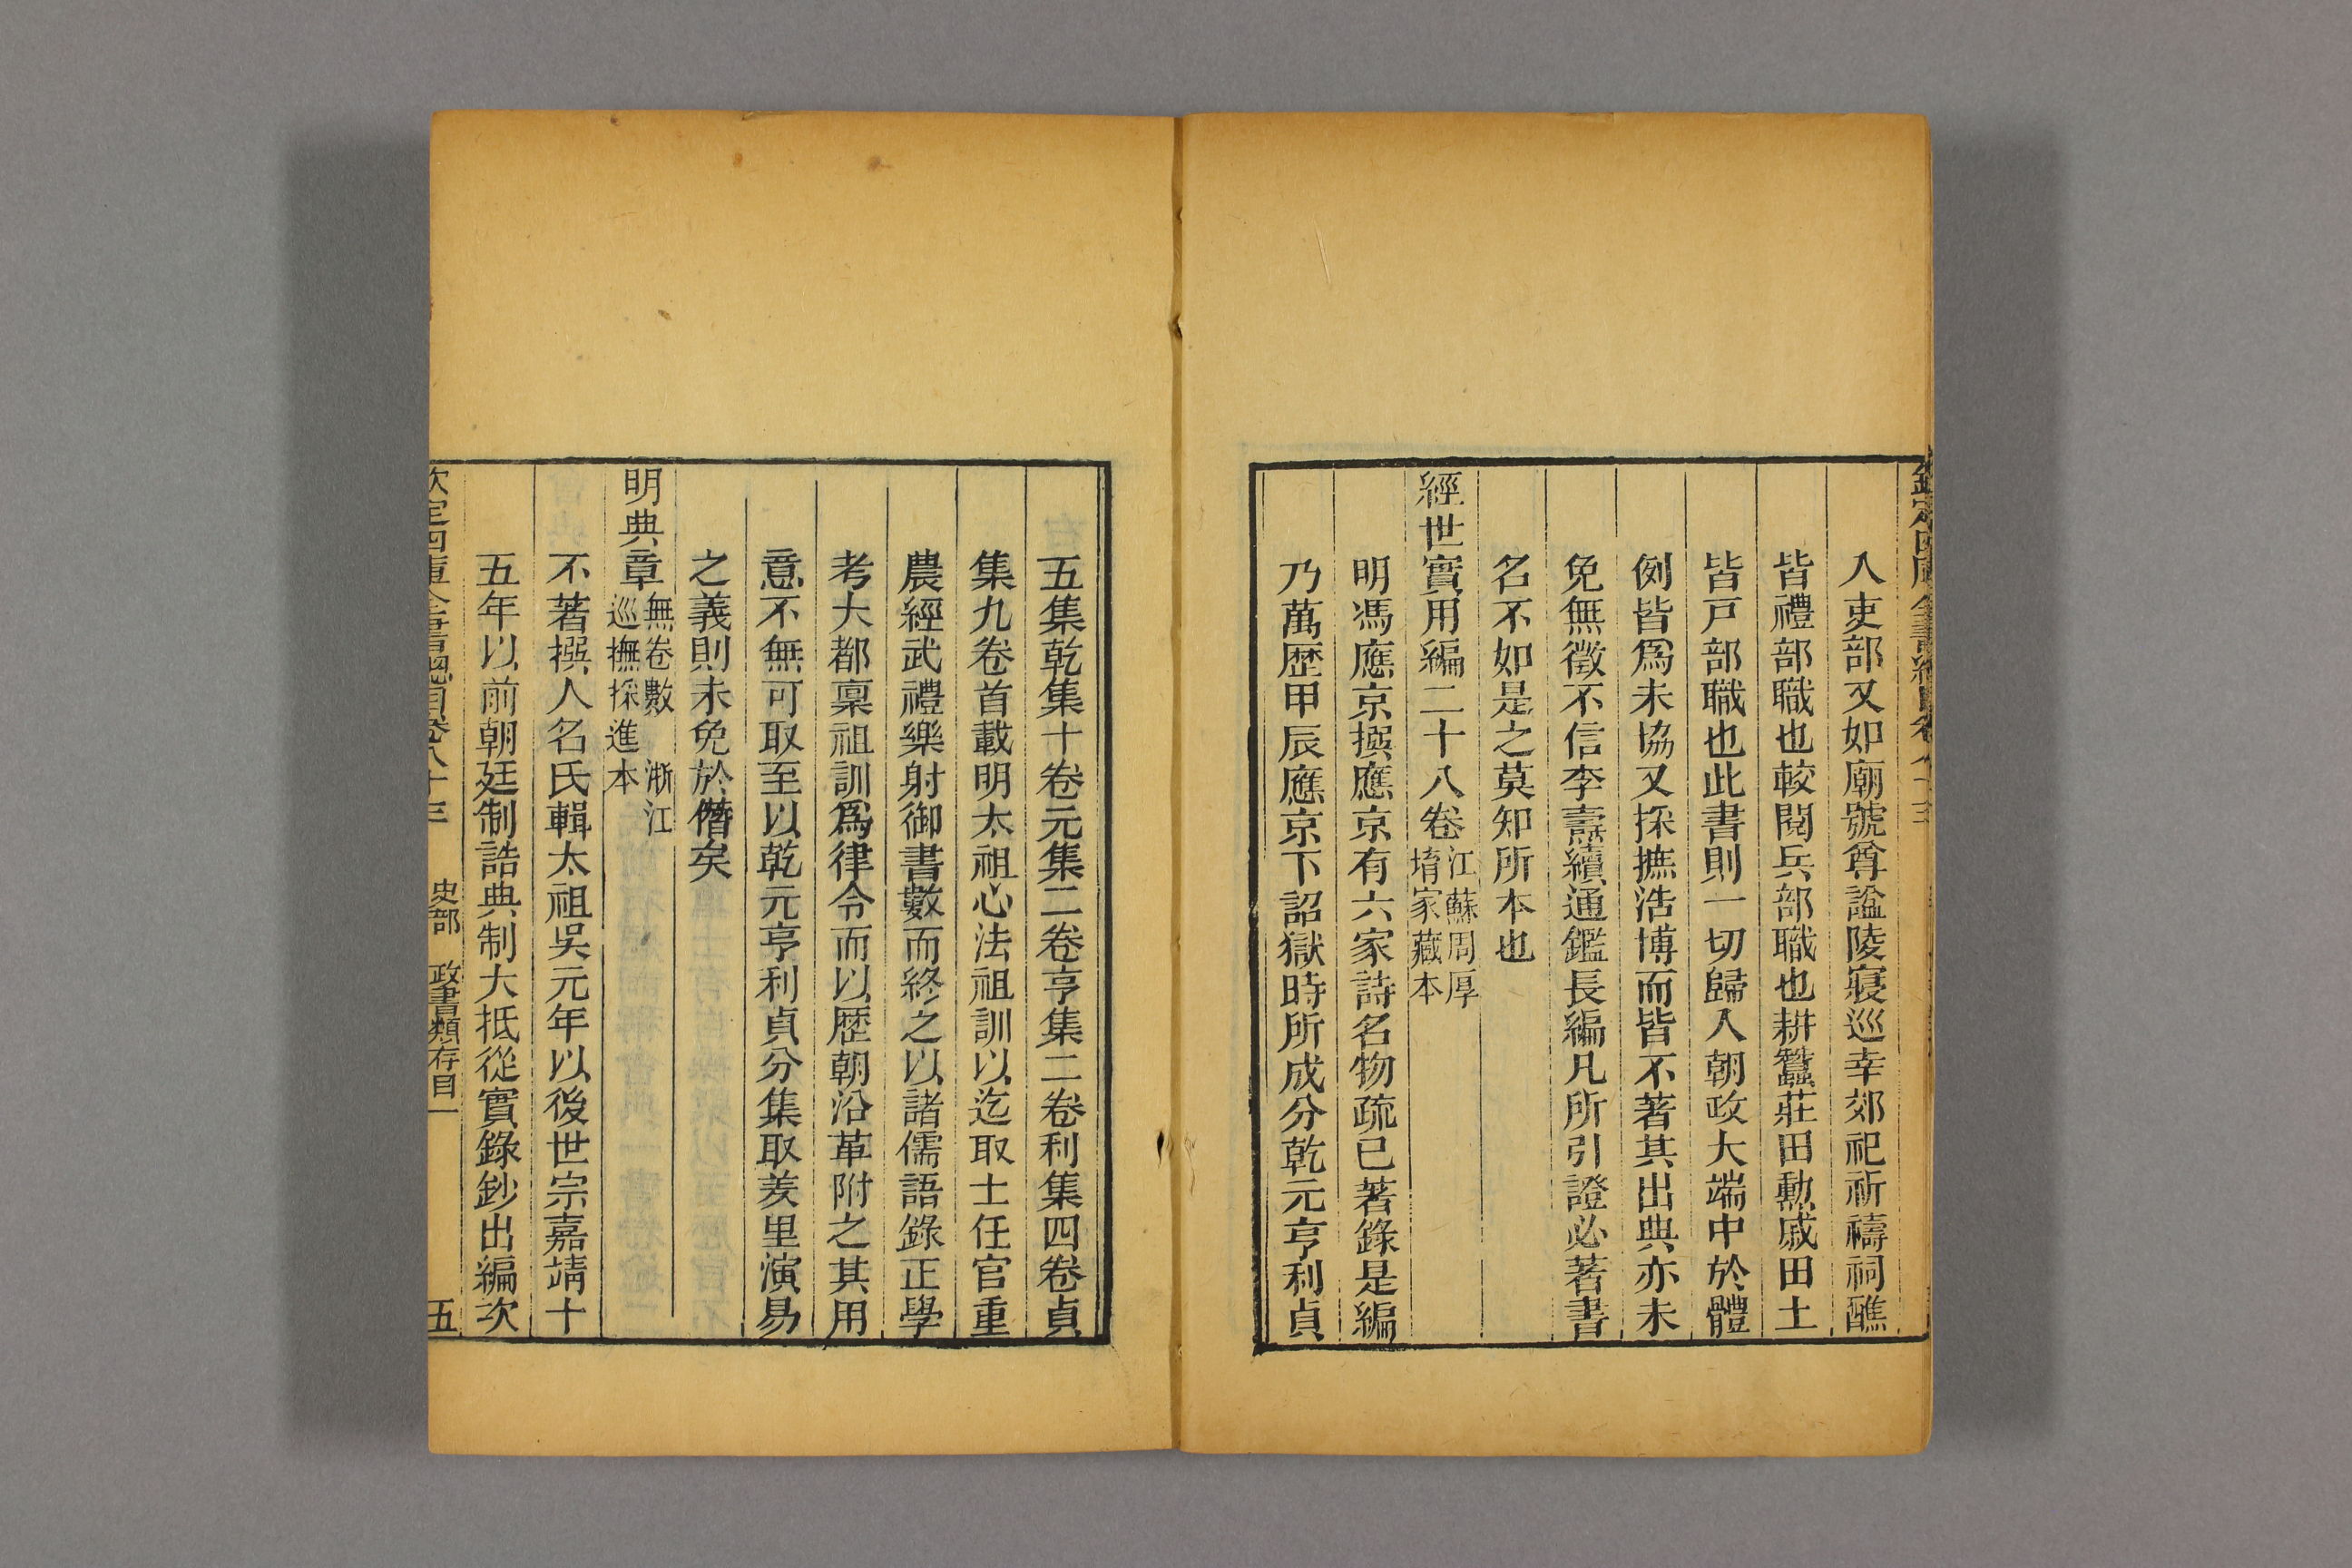 入吏部又如廟號尊謚陵寢巡幸郊祀祈禱祠醮
皆禮部職也較閱兵部職也耕蠶莊田勳戚田土
皆戸部職也此書則一切歸入朝政大端中於體
例皆爲未協又採摭浩博而皆不著其出典亦未
免無徵不信李燾續通鑑長編凡所引證必著書
名不如是之莫知所本也
經世實用編二十八卷江蘇周厚
堉家藏本
明馮應京撰應京有六家詩名物疏已著錄是編
乃萬歷甲辰應京下詔獄時所成分乾元亨利貞
五集乾集十卷元集二卷亨集二卷利集四卷貞
集九卷首載明太祖心法祖訓以迄取士任官重
農經武禮樂射御書數而終之以諸儒語錄正學
考大都稟祖訓爲律令而以歷朝沿革附之其用
意不無可取至以乾元亨利貞分集取羑里演易
之義則未免於僭矣
明典章無卷數 浙江
巡撫採進本
不著撰人名氏輯太祖吳元年以後世宗嘉靖十
五年以前朝廷制誥典制大抵從實錄鈔出編次
欽定四庫全書總目卷八十三 史部 政書類存目一 五